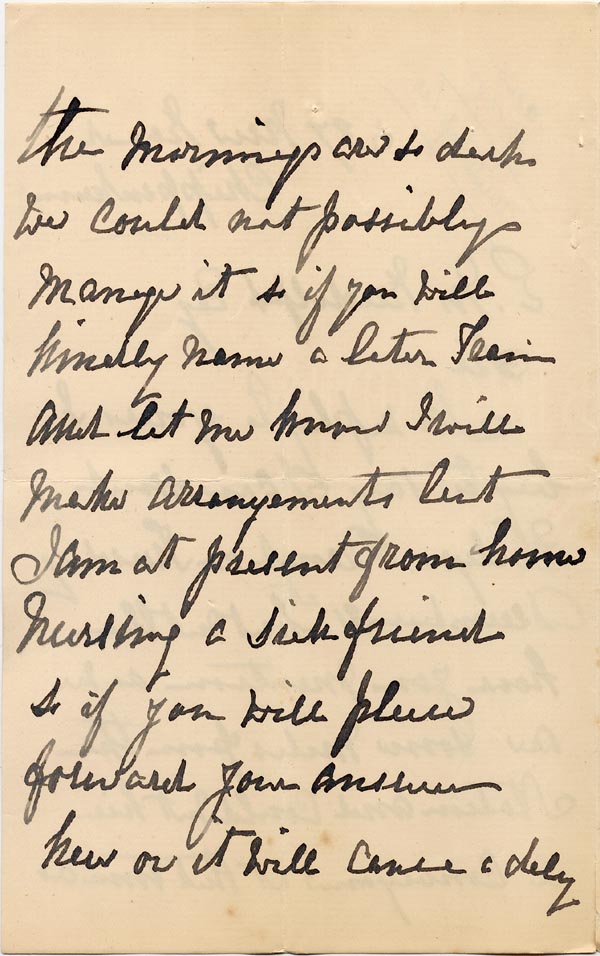 the Mornings are so dark
we could not possibly
manage it so if you will
kindly name a later Train
and let me know I will
make arrangements but
I am at present from home
Nursing a sick friend
so if you will please
forward your answer
here or it will cause a dely